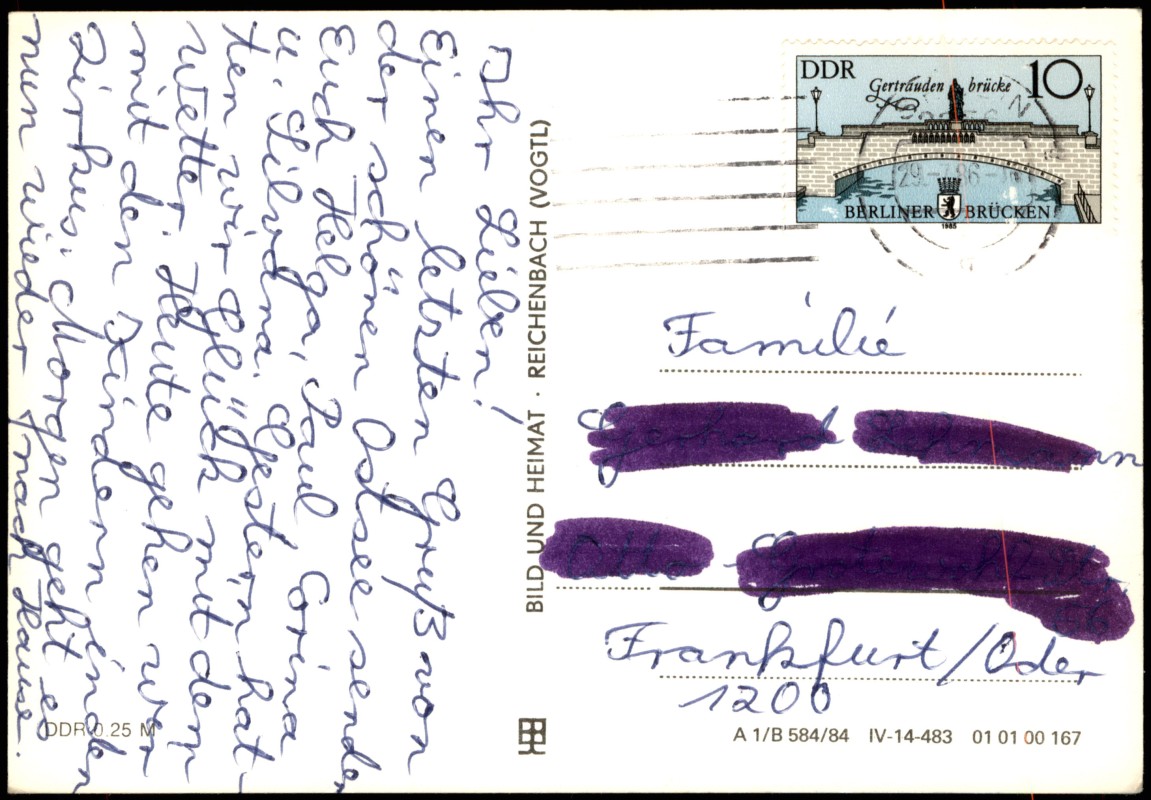 Ihr Lieben!
Einen letzten Gruß von
der schönen Ostsee senden
Euch Helga, Paul, Corina
u. Silvana. Gestern hat-
ten wir Glück mit dem
Wetter. Heute gehen wir
mit den Kindern in den
Zirkus. Morgen geht es
nun wieder nach Hause.
BILD UND HEIMAT · REICHENBACH (VOGTL)
DDR 0.25 M
DDR
Gertrauden brücke
10
29.-7.86
BERLINER BRÜCKEN
1985
Familie
Frankfurt/Oder
1200
A 1/B 584/84 IV-14-483 01 01 00 167